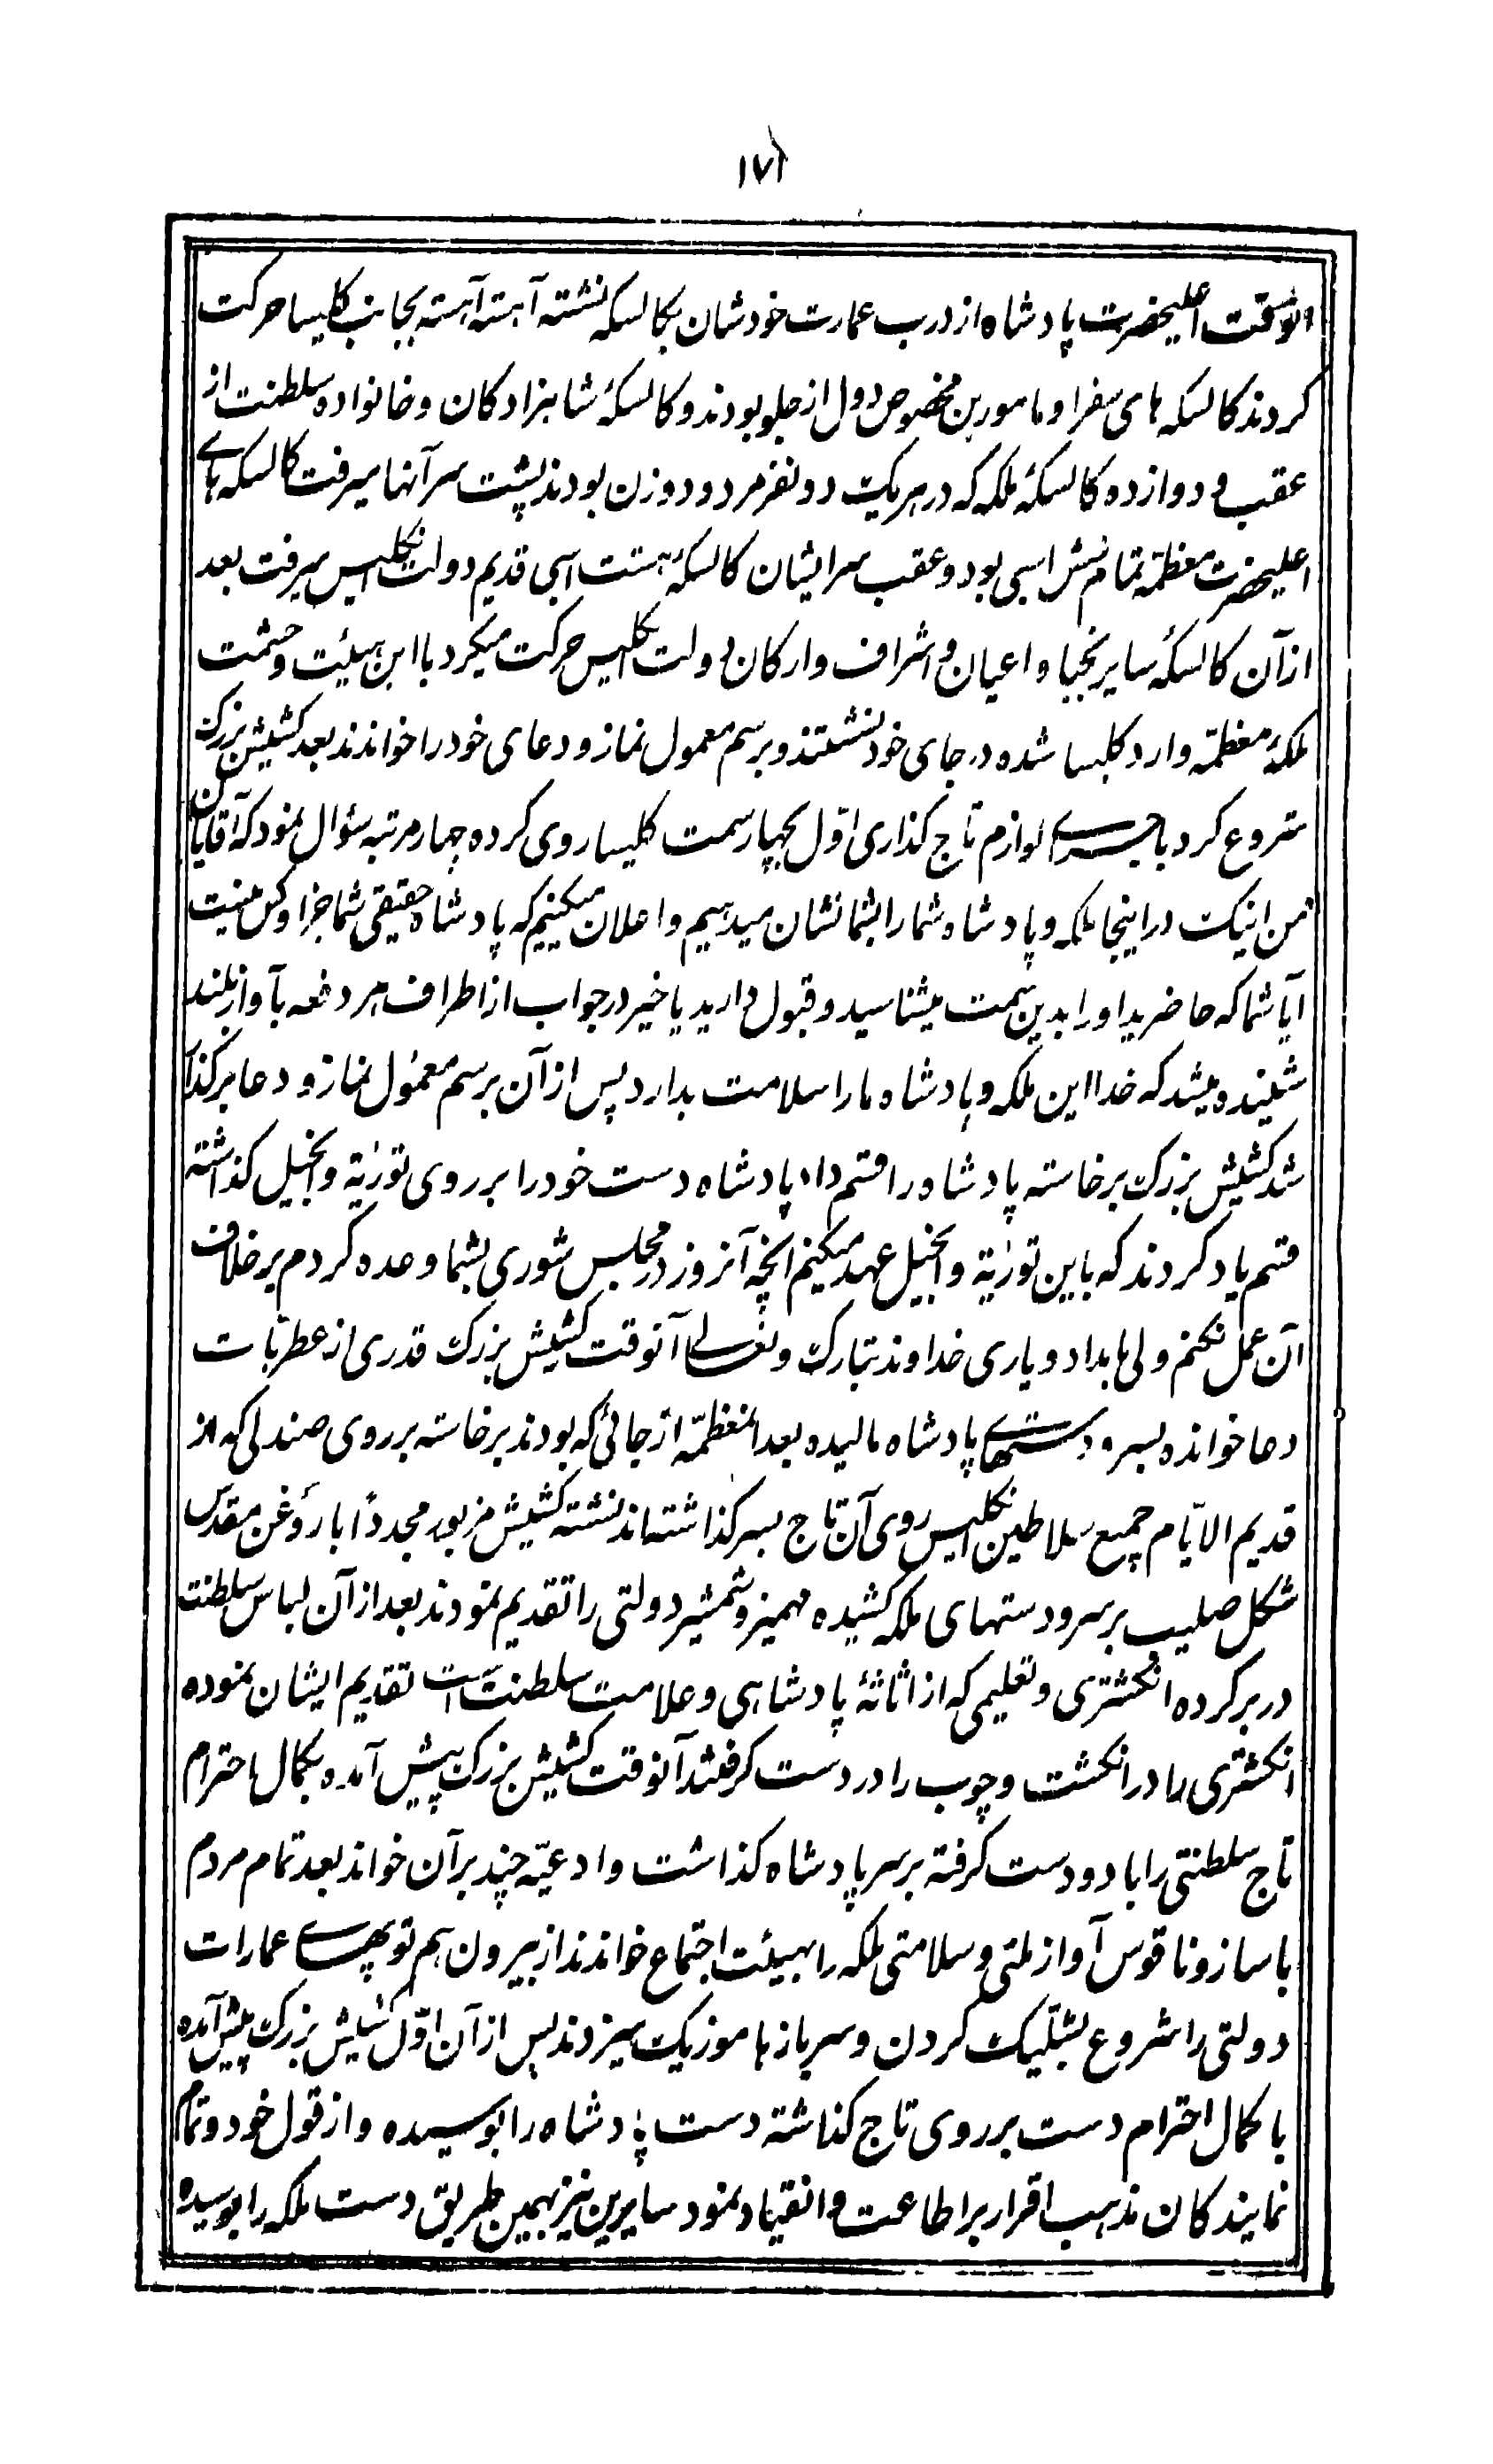 ۱۷۲
آنوقت اعلیحضرت پادشاه از درب عمارت خودشان بکالسکه نشسته آهسته آهسته بجانب کلیسا حرکت
کردند کالسکه های سفرا و مامورین مخصوص دول از جلو بودند و کالسکۀ شاهزادکان و خانواده سلطنت از
عقب و دوازده کالسکۀ ملکه که در هریک دو نفر مرد و دو زن بودند پشت سر آنها میرفت کالسکه های
اعلیحضرت معظمّه تمام شش اسبی بود و عقب سر ایشان کالسکۀ هشت اسبی قدیم دولت انکلیس میرفت بعد
از آن کالسکۀ سایر نجبا و اعیان و اشراف و ارکان دولت انکلیس حرکت میکرد با این هیئت و حشمت
ملکۀ معظمّه وارد کلیسا شده در جای خود نشستند و برسم معمول نماز و دعای خود را خواندند بعد کشیش بزرک
شروع کرد باجرای لوازم تاج کذاری اوّل بچهار سمت کلیسا روی کرده چهار مرتبه سؤال نمود که آقایان
من اینک در اینجا ملکه و پادشاه شما را بشما نشان میدهیم و اعلان میکنیم که پادشاه حقیقی شما جز او کس نیست
آیا شما که حاضرید او را بدین سمت میشناسید و قبول دارید یا خیر در جواب از اطراف هر دفعه بآواز بلند
شنیده میشد که خدا این ملکه و پادشاه ما را سلامت بدارد پس از آن برسم معمول نماز و دعا برکذار
شد کشیش بزرک برخاسته پادشاه را قسم داد پادشاه دست خود را بر روی توریة و انجیل کذاشته
قسم یاد کردند که باین توریة و انجیل عهد میکنم آنچه آنروز در مجلس شوری بشما وعده کردم برخلاف
آن عمل نکنم ولی بامداد و یاری خداوند تبارک و تعالی آنوقت کشیش بزرک قدری از عطریّات
دعا خوانده بسر و دستهای پادشاه مالیده بعد المعظمّه از جائی که بودند برخاسته بر روی صندلی که از
قدیم الایّام جمیع سلاطین انکلیس روی آن تاج بسر کذاشته‌اند نشسته کشیش مزبور مجدداً با روغن مقدس
شکل صلیب بر سر و دستهای ملکه کشیده مهمیز و شمشیر دولتی را تقدیم نمودند بعد از آن لباس سلطنت
در بر کرده انکشتری و تعلیمی که از اثاثۀ پادشاهی و علامت سلطنت است تقدیم ایشان نموده
انکشتری را در انکشت و چوب را در دست کرفتند آنوقت کشیش بزرک پیش آمده بکمال احترام
تاج سلطنتی را با دو دست کرفته بر سر پادشاه کذاشت و ادعیّه چند بر آن خواند بعد تمام مردم
با ساز و ناقوس آواز ملتی و سلامتی ملکه را بهیئت اجتماع خواندند از بیرون هم توپهای عمارات
دولتی را شروع بشلّیک کردن و سربازها موزیک میزدند پس از آن اوّل کشیش بزرک پیش آمده
با کمال احترام دست بر روی تاج کذاشته دست پادشاه را بوسیده و از قول خود و تمام
نمایندکان مذهب اقرار بر اطاعت و انقیاد نمود سایرین نیز بهمین طریق دست ملکه را بوسیده